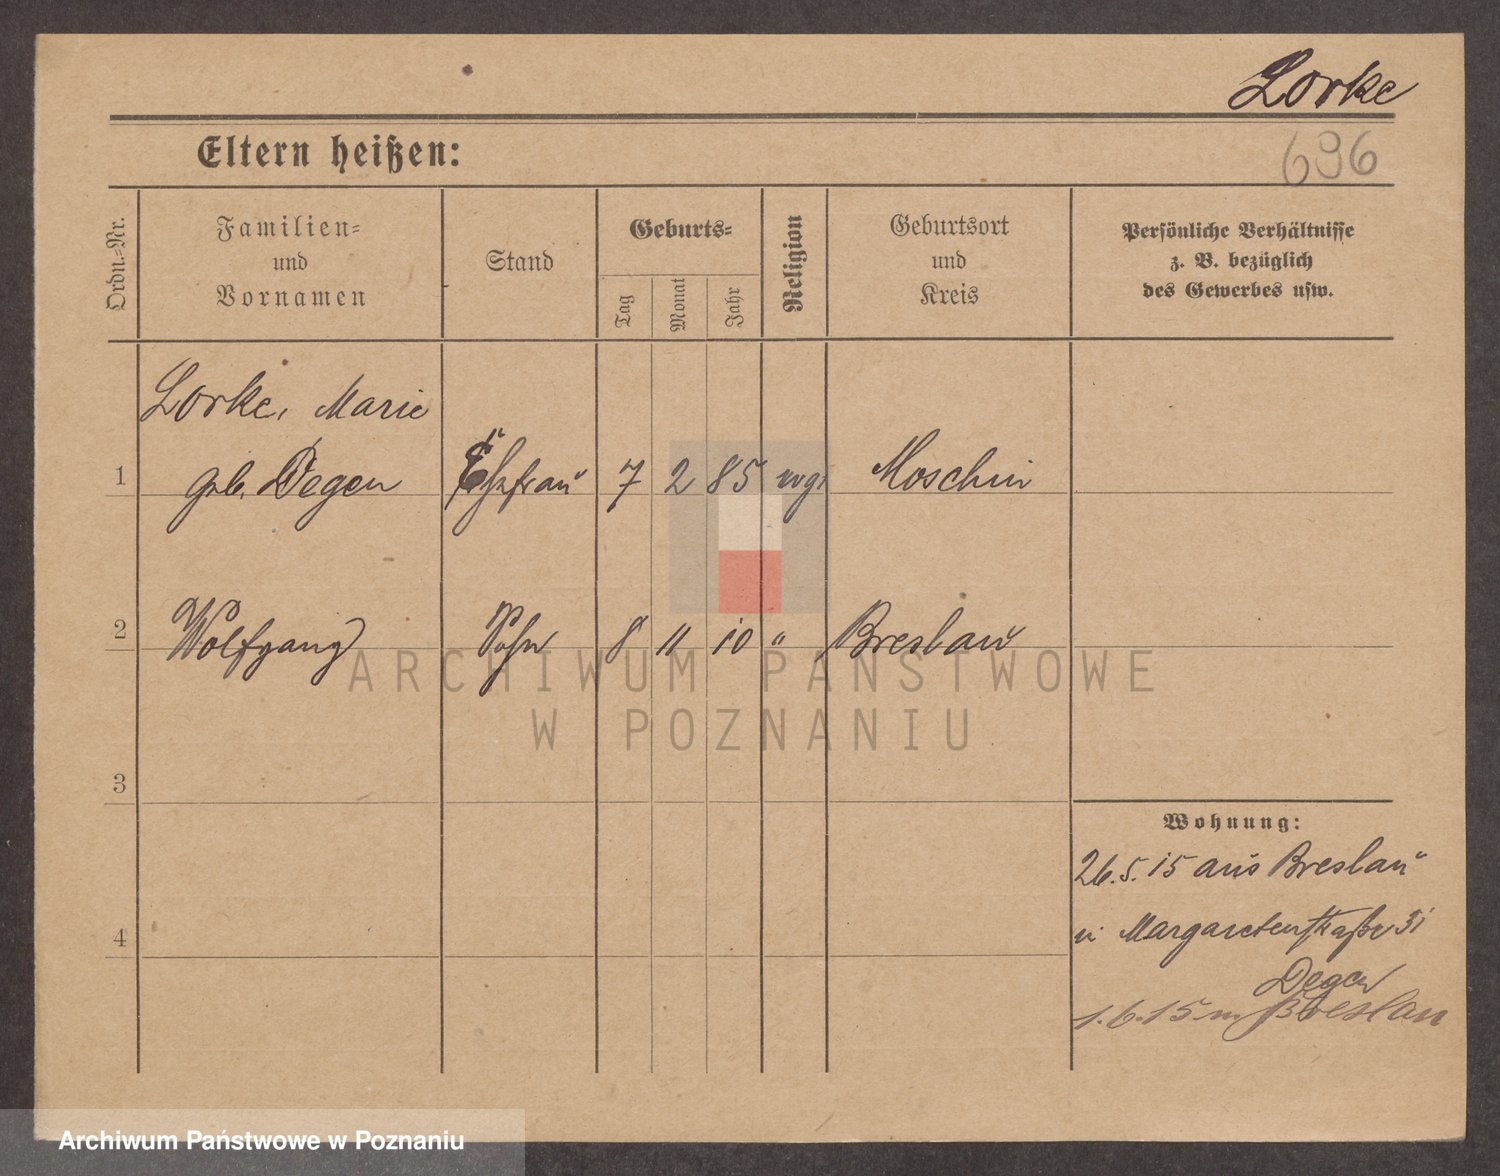 Lorke
Eltern heißen:
696
Ordn.=Nr.
Familien=
und
Vornamen
Stand
Geburts=
Tag
Monat
Jahr
Religion
Geburtsort
und
Kreis
Persönliche Verhältnisse
z. B. bezüglich
des Gewerbes usw.
Lorke, Marie
1 geb. Degen Ehefrau 7 2 85 evg. Moschin
2 Wolfgang Sohn 8 11 10 " Breslau
ARCHIWUM PAŃSTWOWE
W POZNANIU
3
Wohnung:
26.5.15 aus Breslau
n Margaretenstraße 31
4
Degen
1.6.15 n Breslau
Archiwum Państwowe w Poznaniu